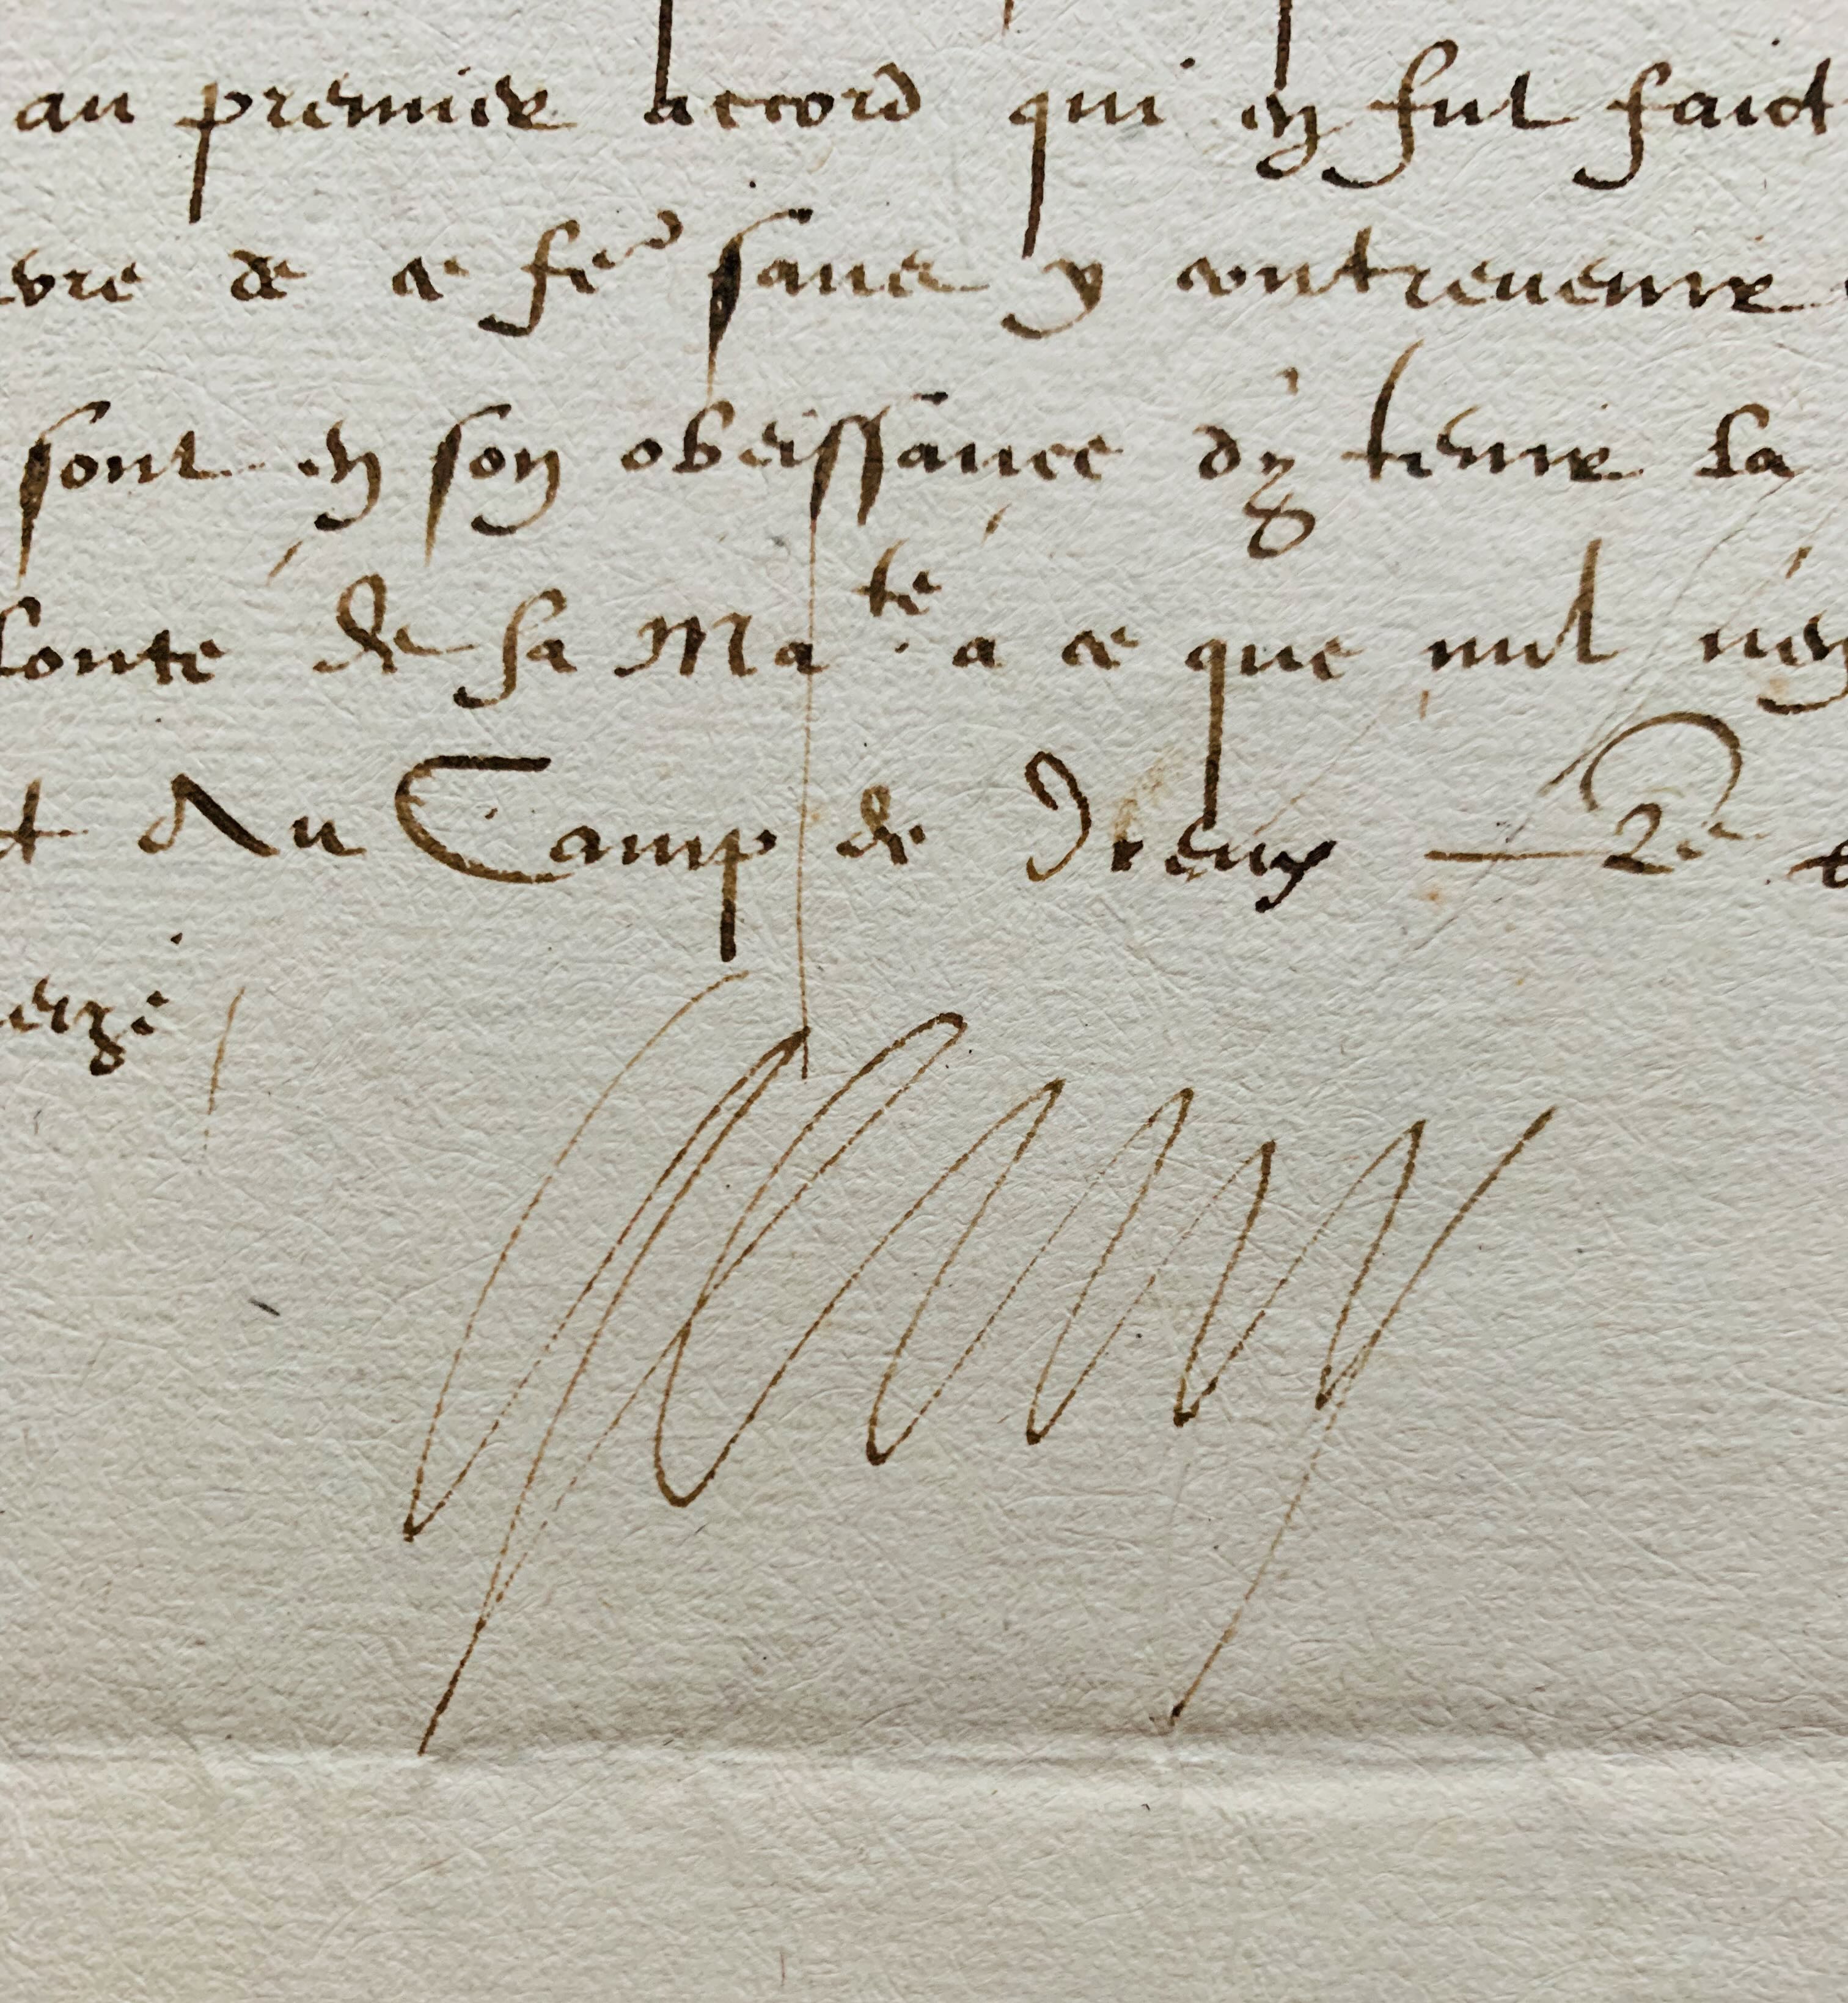 au premier accord qui en fut faict
de ce fe sans y contrevenir
sont en son obeissance d'y tenir la
lonté de sa Ma.té à ce que nul n'en
Au Camp de Dreux Le
Henry